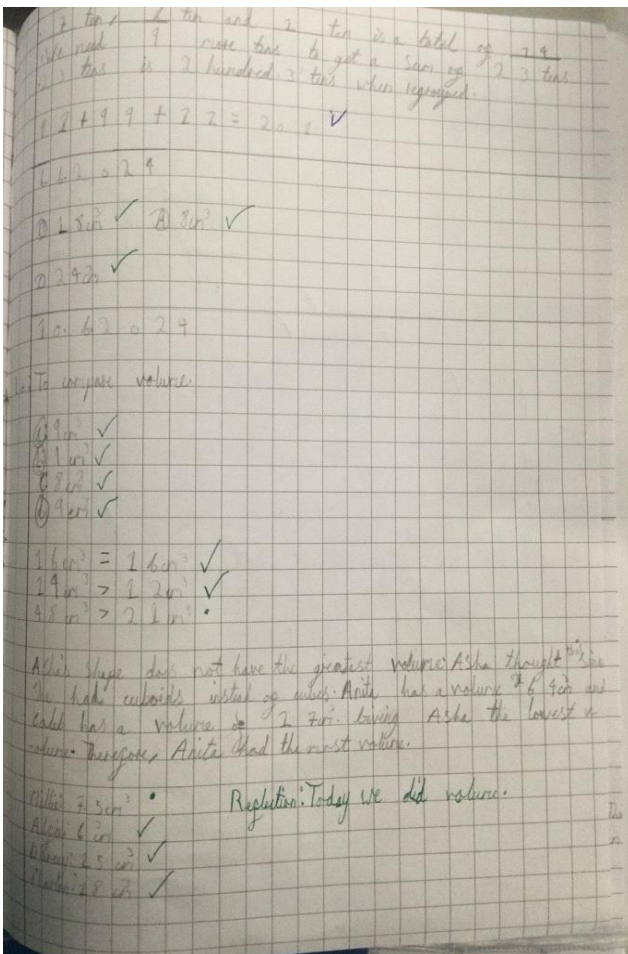 7 tens, 6 tens and 1 ten is a total of 14
We need 9 more tens to get a sum of 23 tens
23 tens is 2 hundred 3 tens when regrouped.
12+99+22=201
6 6 2 0 24
18cm³ 8cm³
24cm
10. 6 2 0 24
To compare volume.
a 9cm³
b 9cm³
c 8cm³
d 9cm³
16cm³ = 16cm³
14cm³ > 12cm³
48cm³ > 21cm³
Asha's shape does not have the greatest volume. Asha thought this
she had cuboids insted of cubes. Anita has a volume of 64cm³ and
Caleb has a volume of 27cm³. leving Asha the lowest v
volume. Therefore, Anita had the most volume.
75cm³ Reflection: Today we did volume.
6cm³
25cm³
18cm³